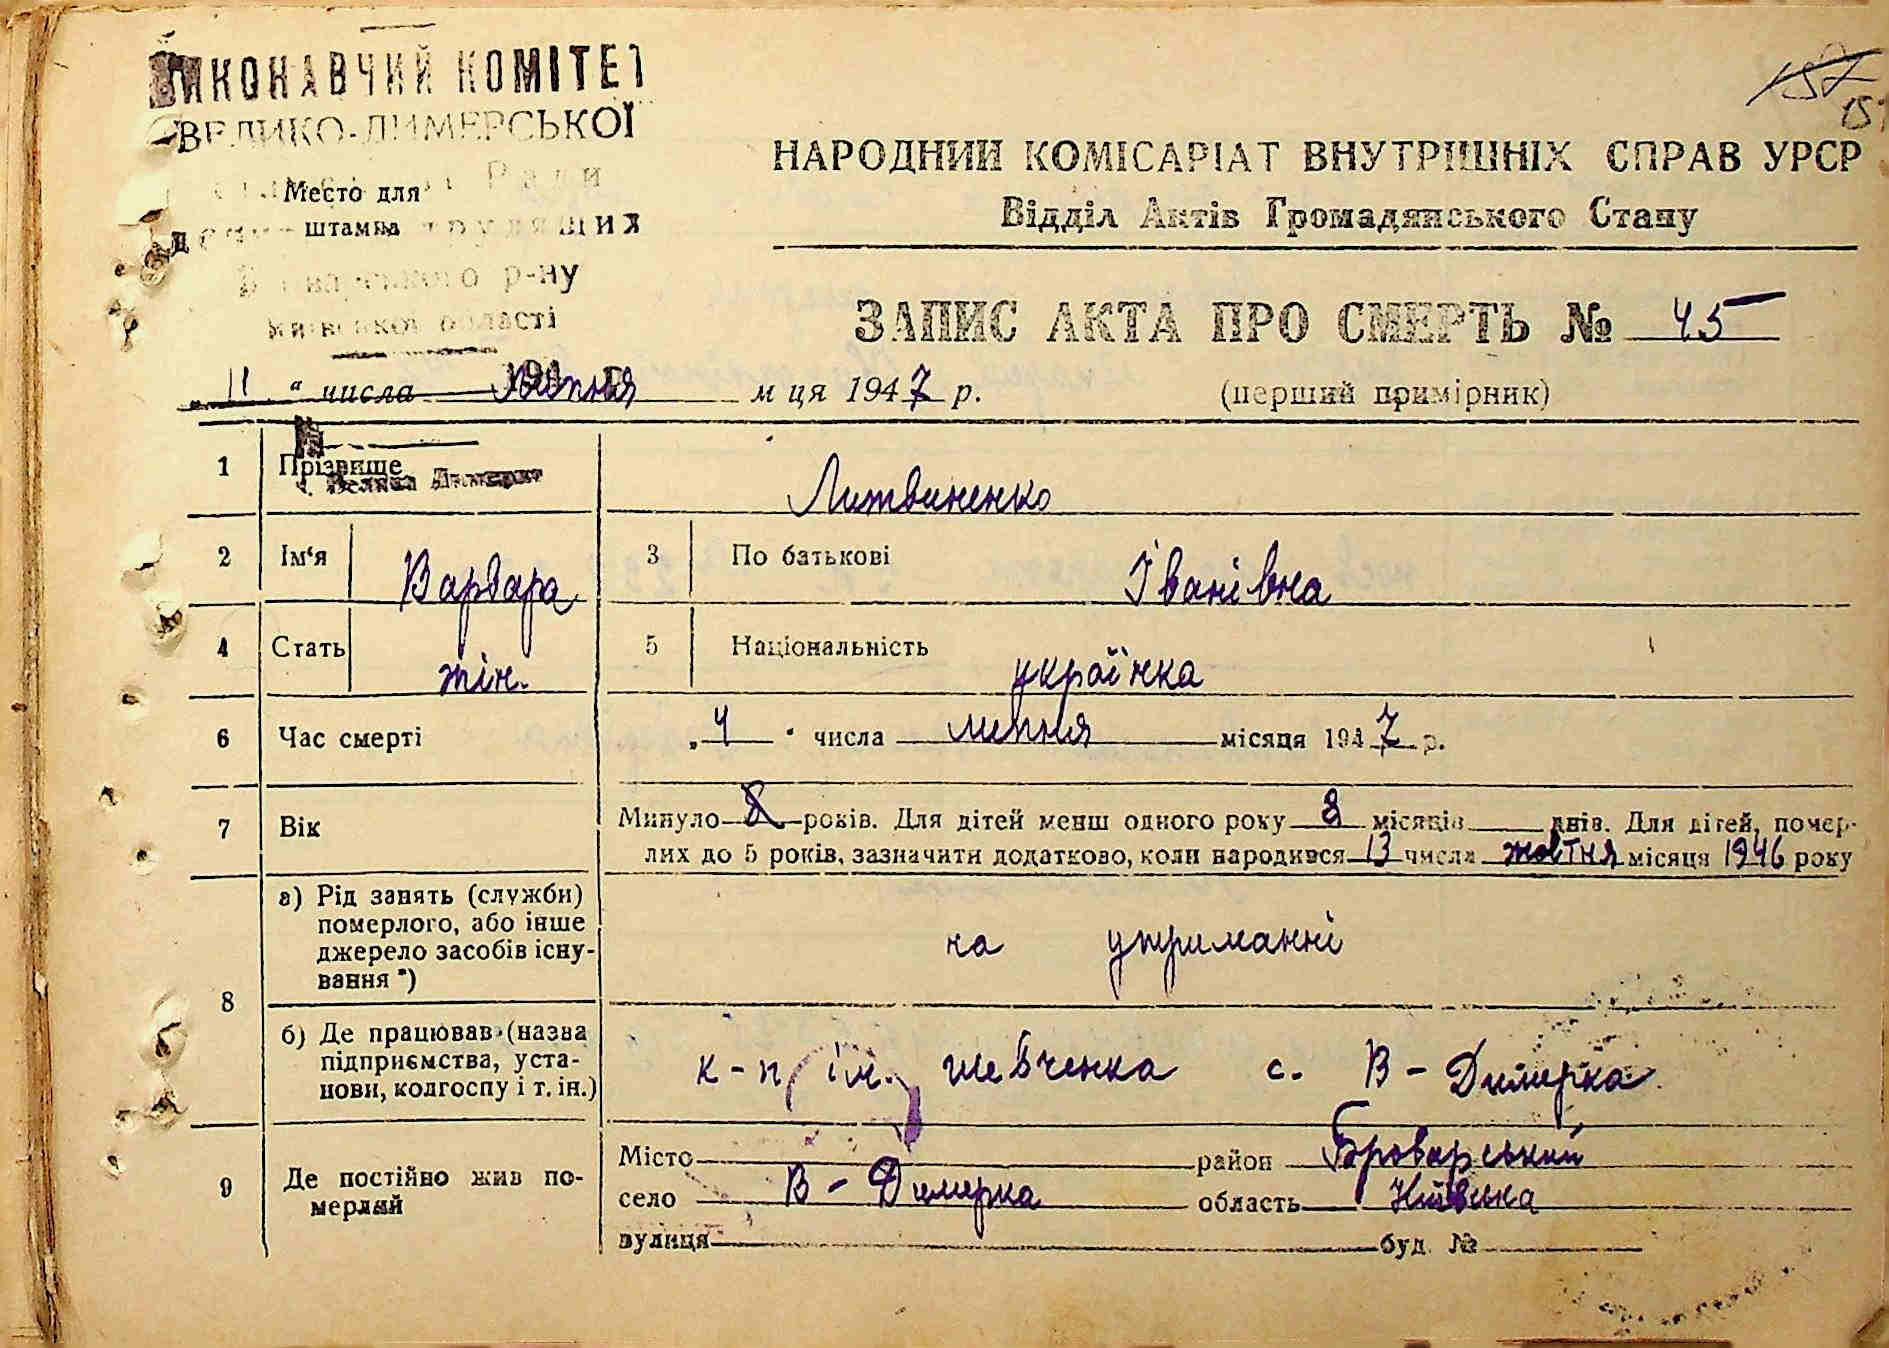 ВИКОНАВЧИЙ КОМІТЕТ
ВЕЛИКО-ДИМЕРСЬКОЇ
Ради
Место для
штампа
трудящих
р-ну
Київської області
194 р.
157
НАРОДНИЙ КОМІСАРІАТ ВНУТРІШНІХ СПРАВ УРСР
Відділ Актів Громадянського Стану
ЗАПИС АКТА ПРО СМЕРТЬ № 45
„ 11 " числа липня м ця 1947 р. (перший примірник)
1 Прізвище Литвиненко
с. Велика Димерка
2 Ім'я Варвара 3 По батькові Іванівна
4 Стать жін. 5 Національність українка
6 Час смерті „ 4 " числа липня місяця 1947 р.
7 Вік Минуло 8 років. Для дітей менш одного року 8 місяців днів. Для дітей, помер-
лих до 5 років, зазначити додатково, коли народився 13 числа жовтня місяця 1946 року
8 а) Рід занять (служби) померлого, або інше джерело засобів існу-вання *) на утриманні
б) Де працював (назва підприємства, уста-нови, колгоспу і т. ін.) к-п ім. Шевченка с. В-Димерка
9 Де постійно жив по-мерлий
Місто район Броварський
село В-Димерка область Київська
вулиця буд. №